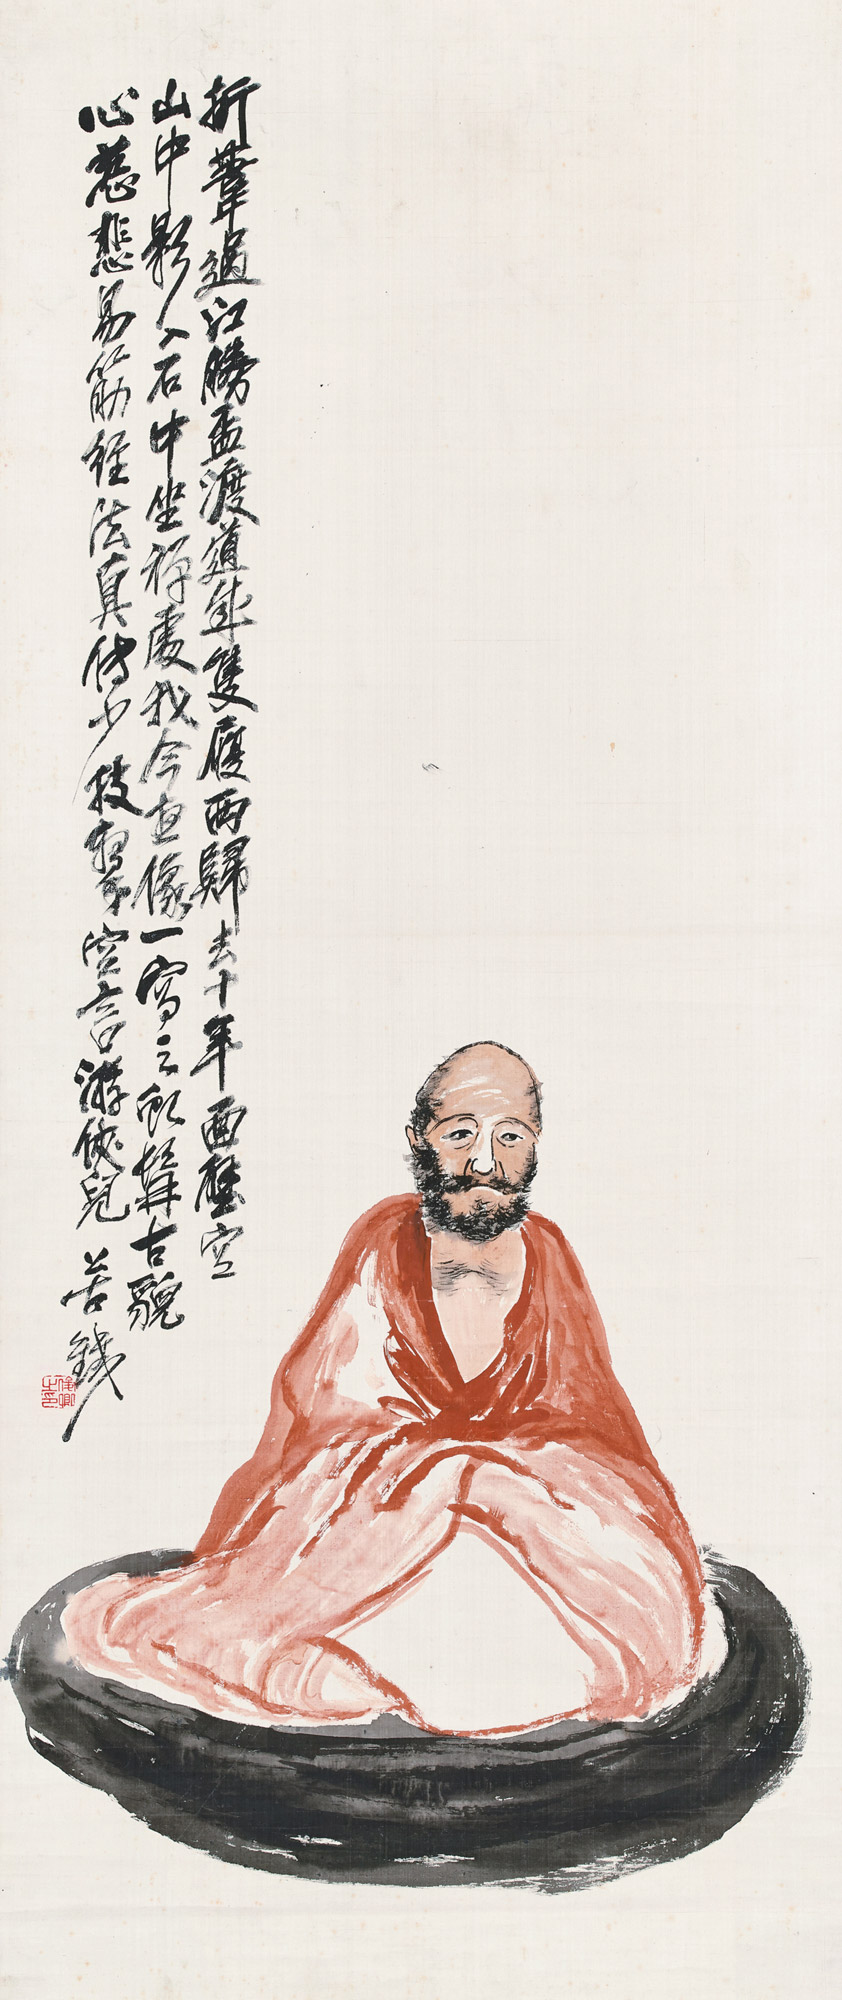 折葦過江勝盃渡道成隻履西歸去十年面壁空
山中影入石中坐禪處我今畫像一寫之虬髯古貌
心慈悲易筋經法真傳少技擊空言游俠兒 苦鐵
俊卿之印